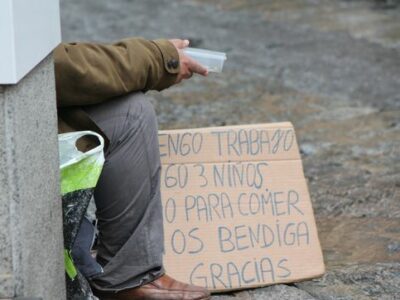 ENGO TRABAJO
GO 3 NINOS
O PARA COMER
OS BENDIGA
GRACIAS